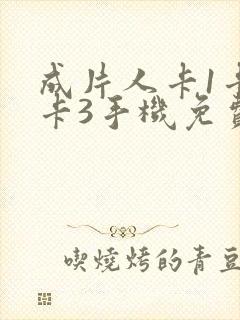 成片人卡1卡
卡3手機免費
喫燒烤的青豆